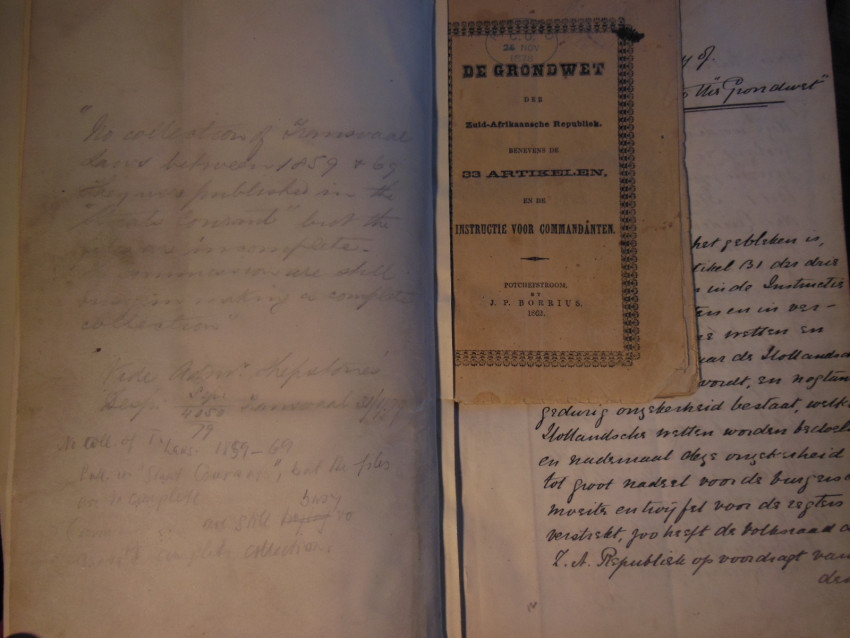 "No collection of Transvaal
Laws between 1859 & 69
They were published in the
"Staats Courant" but the
are incomplete.
Commission are still
busy in making a complete
collection"
Vide Adm. Shepstone's
Desp.
4050
79
Transvaal
No coll. of Laws 1859-69
in "Staat Courant", but the files
are incomplete
busy
are still
complete collection.
C. O.
26 NOV
1878
DE GRONDWET
DER
Zuid-Afrikaansche Republiek.
BENEVENS DE
33 ARTIKELEN,
EN DE
INSTRUCTIE VOOR COMMANDÂNTEN.
POTCHEFSTROOM.
BY
J. P. BORRIUS.
1863.
Grondwet"
het gebleken is,
131 des drie
in de Instructie
en in ver-
wetten en
de Hollandsch
wordt, en nogtan
gedurig onzekerheid bestaat, welke
Hollandsche wetten worden bedoel
en nademaal deze onzekerheid
tot groot nadeel voor de burgers
moeite en twyfel voor de regters
verstrekt, zoo heeft de Volksraad d
Z. A. Republiek op voordragt van
den